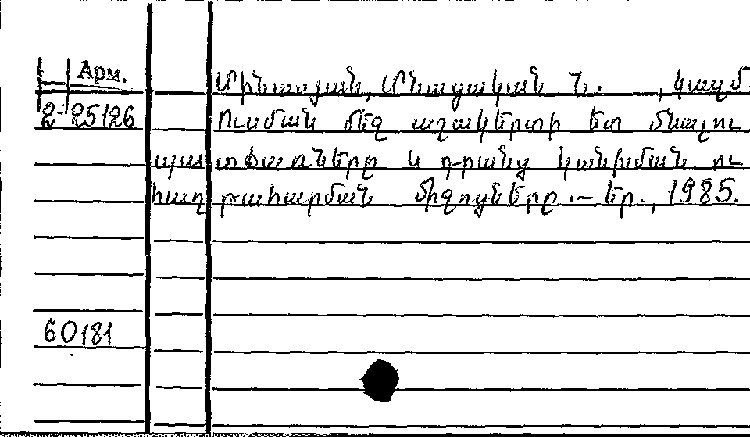 Арм.
Մինասյան, Մնացական Ն. , կազմ
2-25126
Ուսման մեջ աշակերտի ետ մնալու
պատճառները և դրանց կանխման ու
հաղթահարման միջոցները.— Եր., 1985.
60181